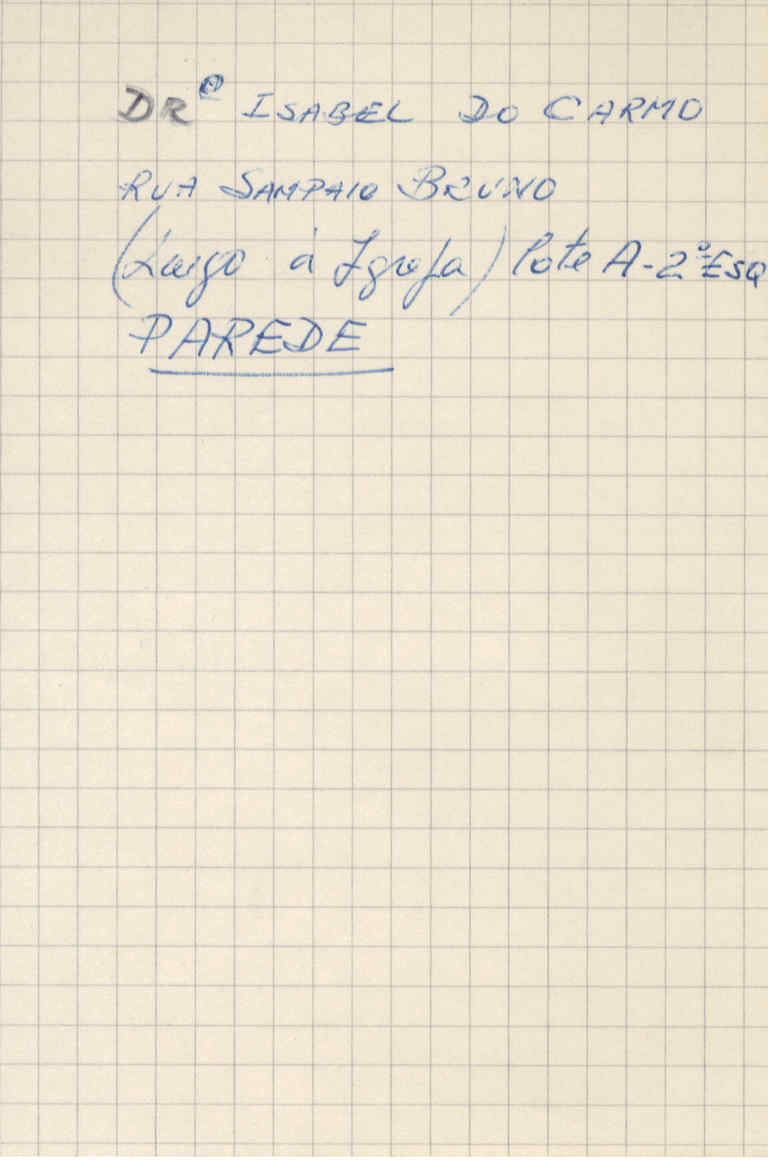 DRª ISABEL DO CARMO
RUA SAMPAIO BRUNO
(Largo á Igreja) Lote A-2º ESQ
PAREDE